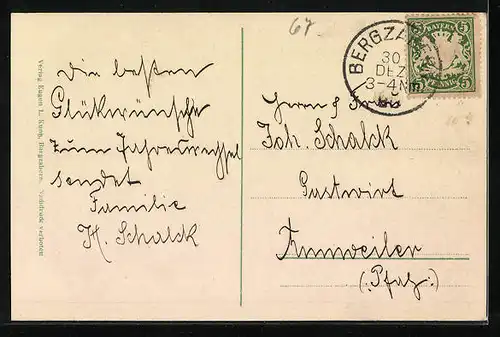 67.
BERGZA
30
DEZ
3-4N
BAYERN
5 5
Die besten
Glükwünsche
zum Jahreswechsel
sendet
Familie
H. Schalck
Herrn & Frau
Joh. Schalck
Gastwirt
Annweiler
(:Pfalz:)
Verlag Eugen L. Bergzabern. Nachdruck verboten